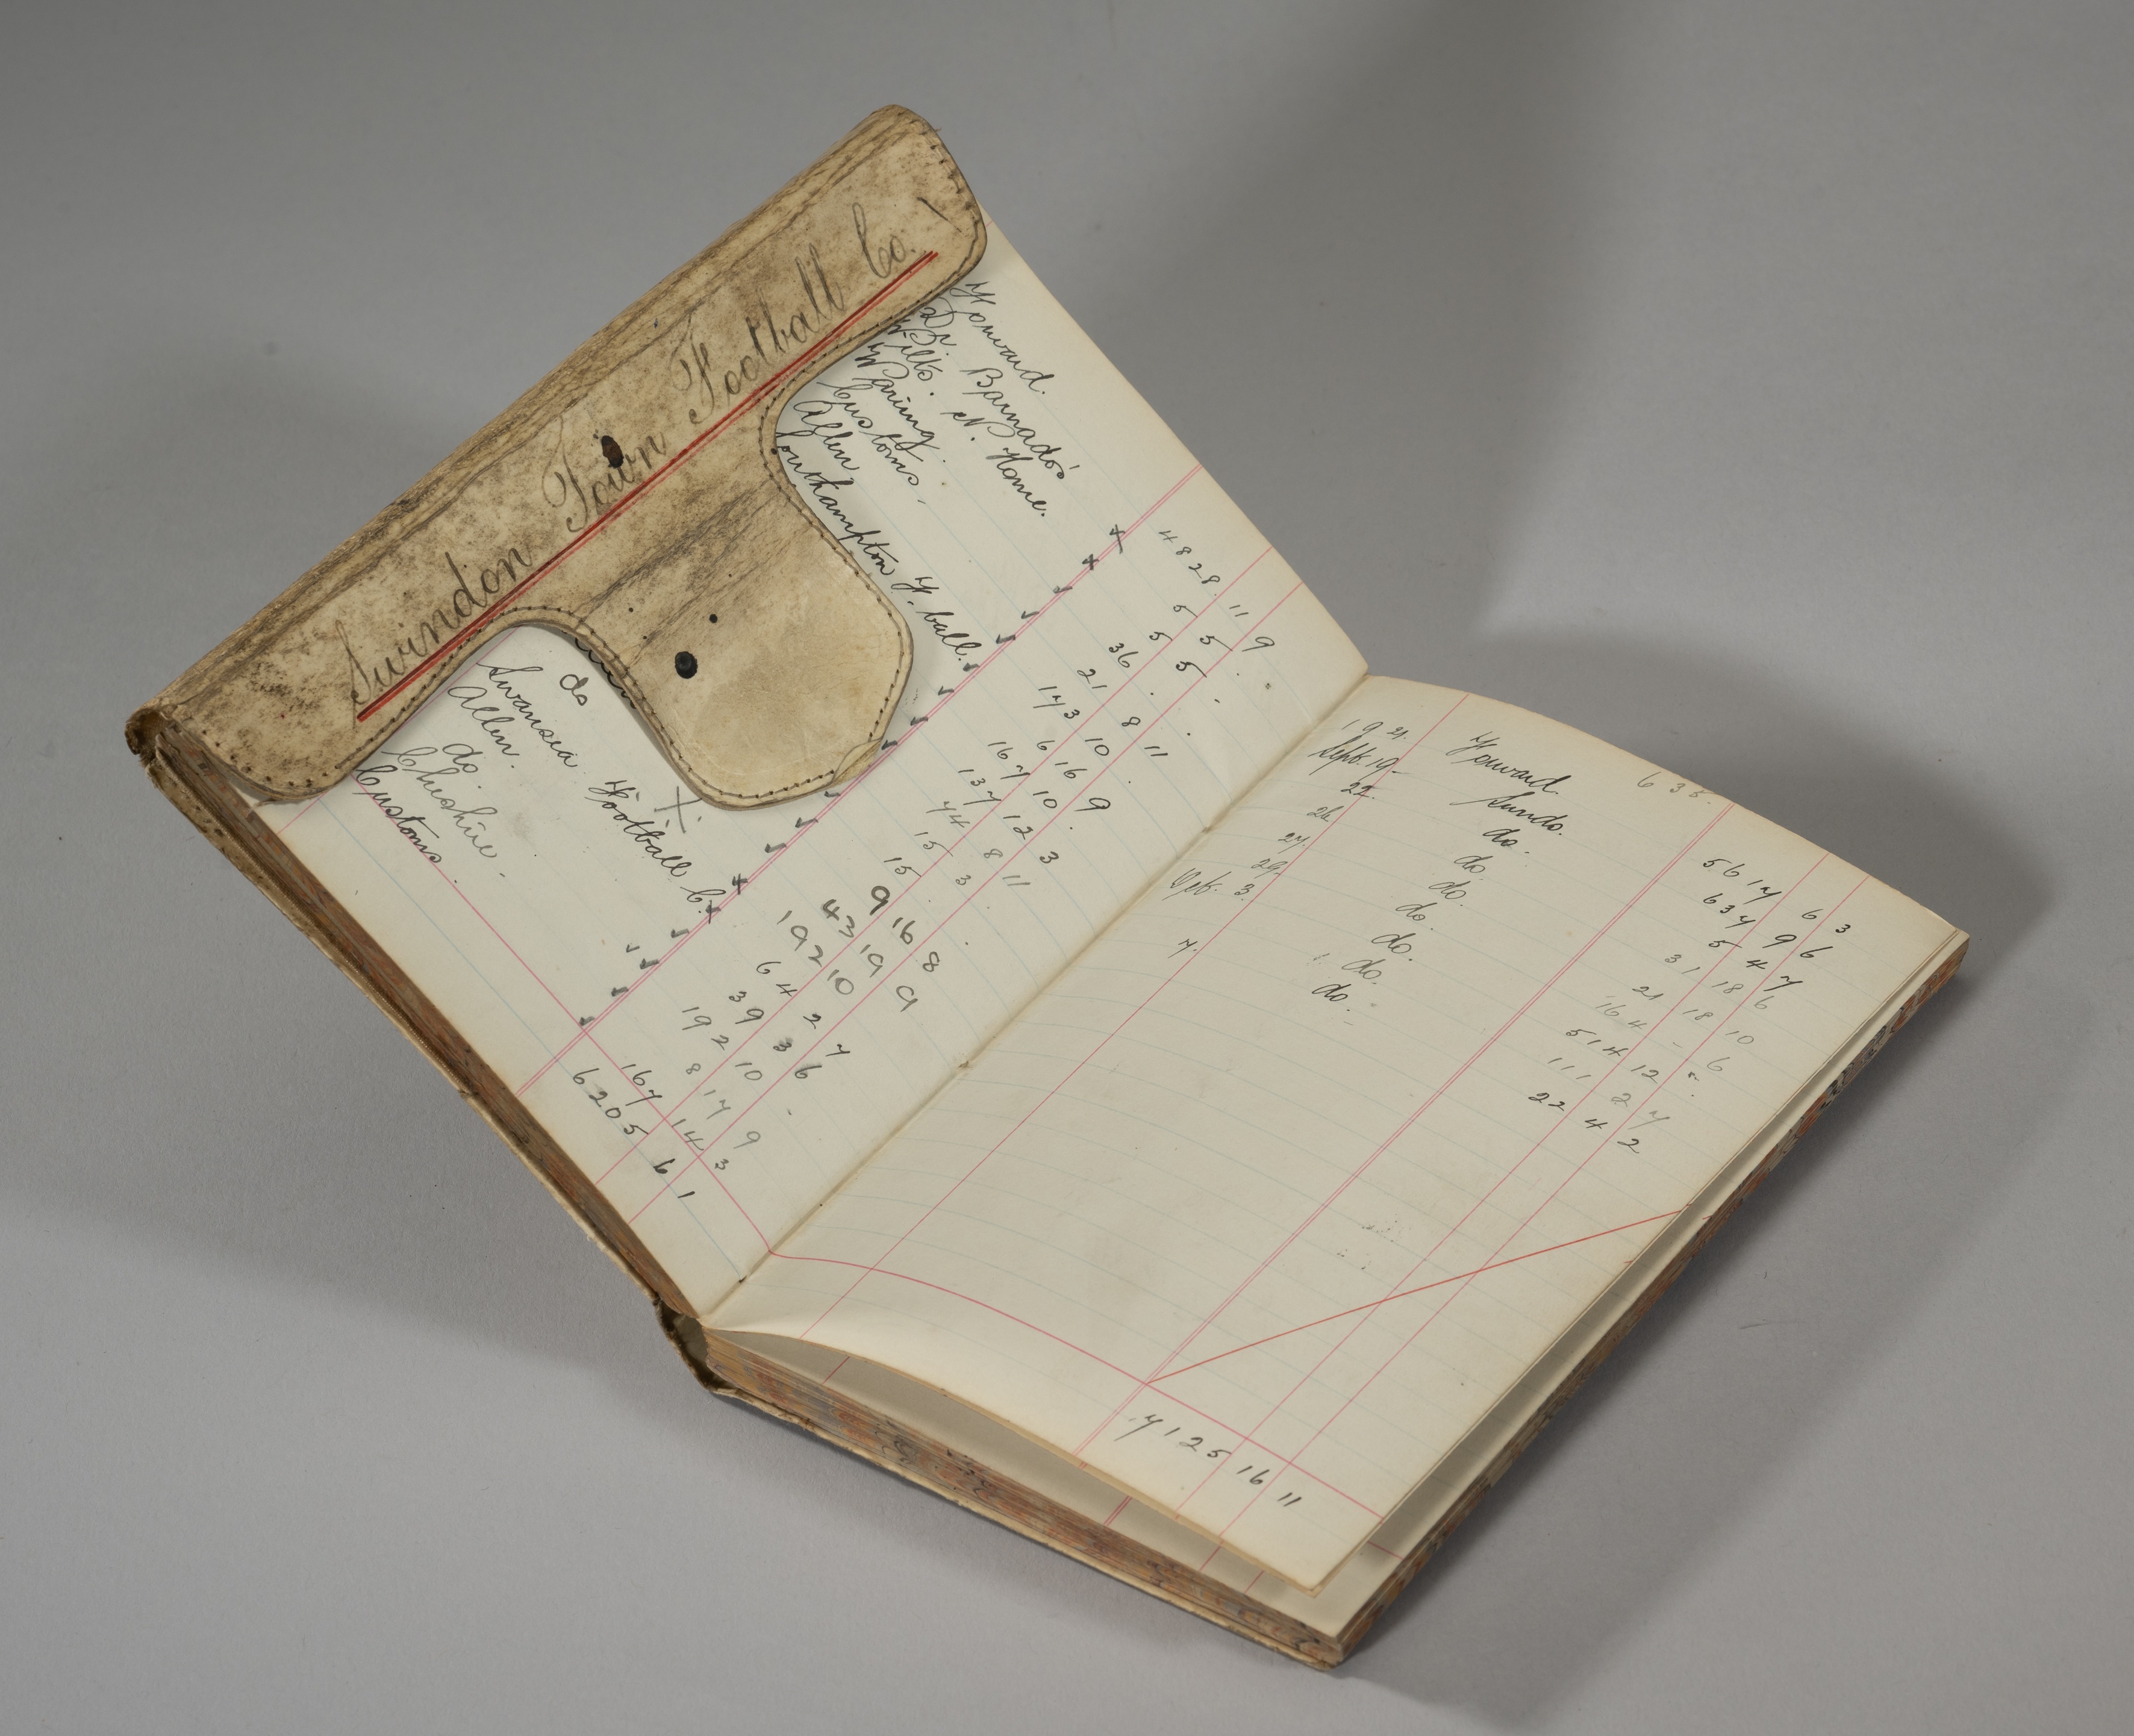 Swindon Town Football Co.
Forward. × 4828 11 9
Dr Barnados' × 5 5 .
Wilts. N. Home. 5 5 -
Waring. 36 . .
Customs. 21 8 11
Allen 173 10 .
Southampton F. ball. 6 16 9
167 10 .
137 12 3
74 8 11
15 3 .
15 . .
9 16 8
do 43 19 9
Swansea Football C. × 192 10
Allen. 64 2 7
do 39 3 6
192 10 -
Cheshire. 8 17 9
Customs. 167 14 3
6205 6 1
1921. Forward. 635. 5617 6 3
Sept. 19 Sundo. 637 9 6
22. do. 5 4 7
26 do 31 18 6
27. do. 21 18 10
29. do 164 - 6
Oct. 3. do. 514 12 -
do. 111 2 7
7. do. 22 4 2
7125 16 11